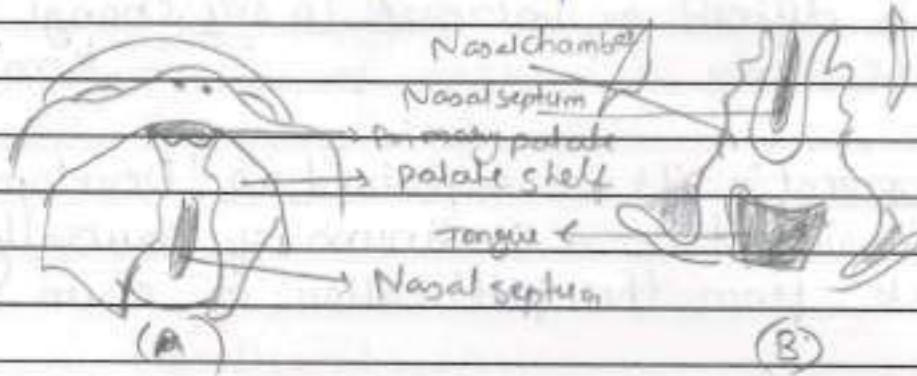 Nasal chamber
Nasal septum
Primary palate
palate shelf
Tongue
Nasal septum
(A)
(B)